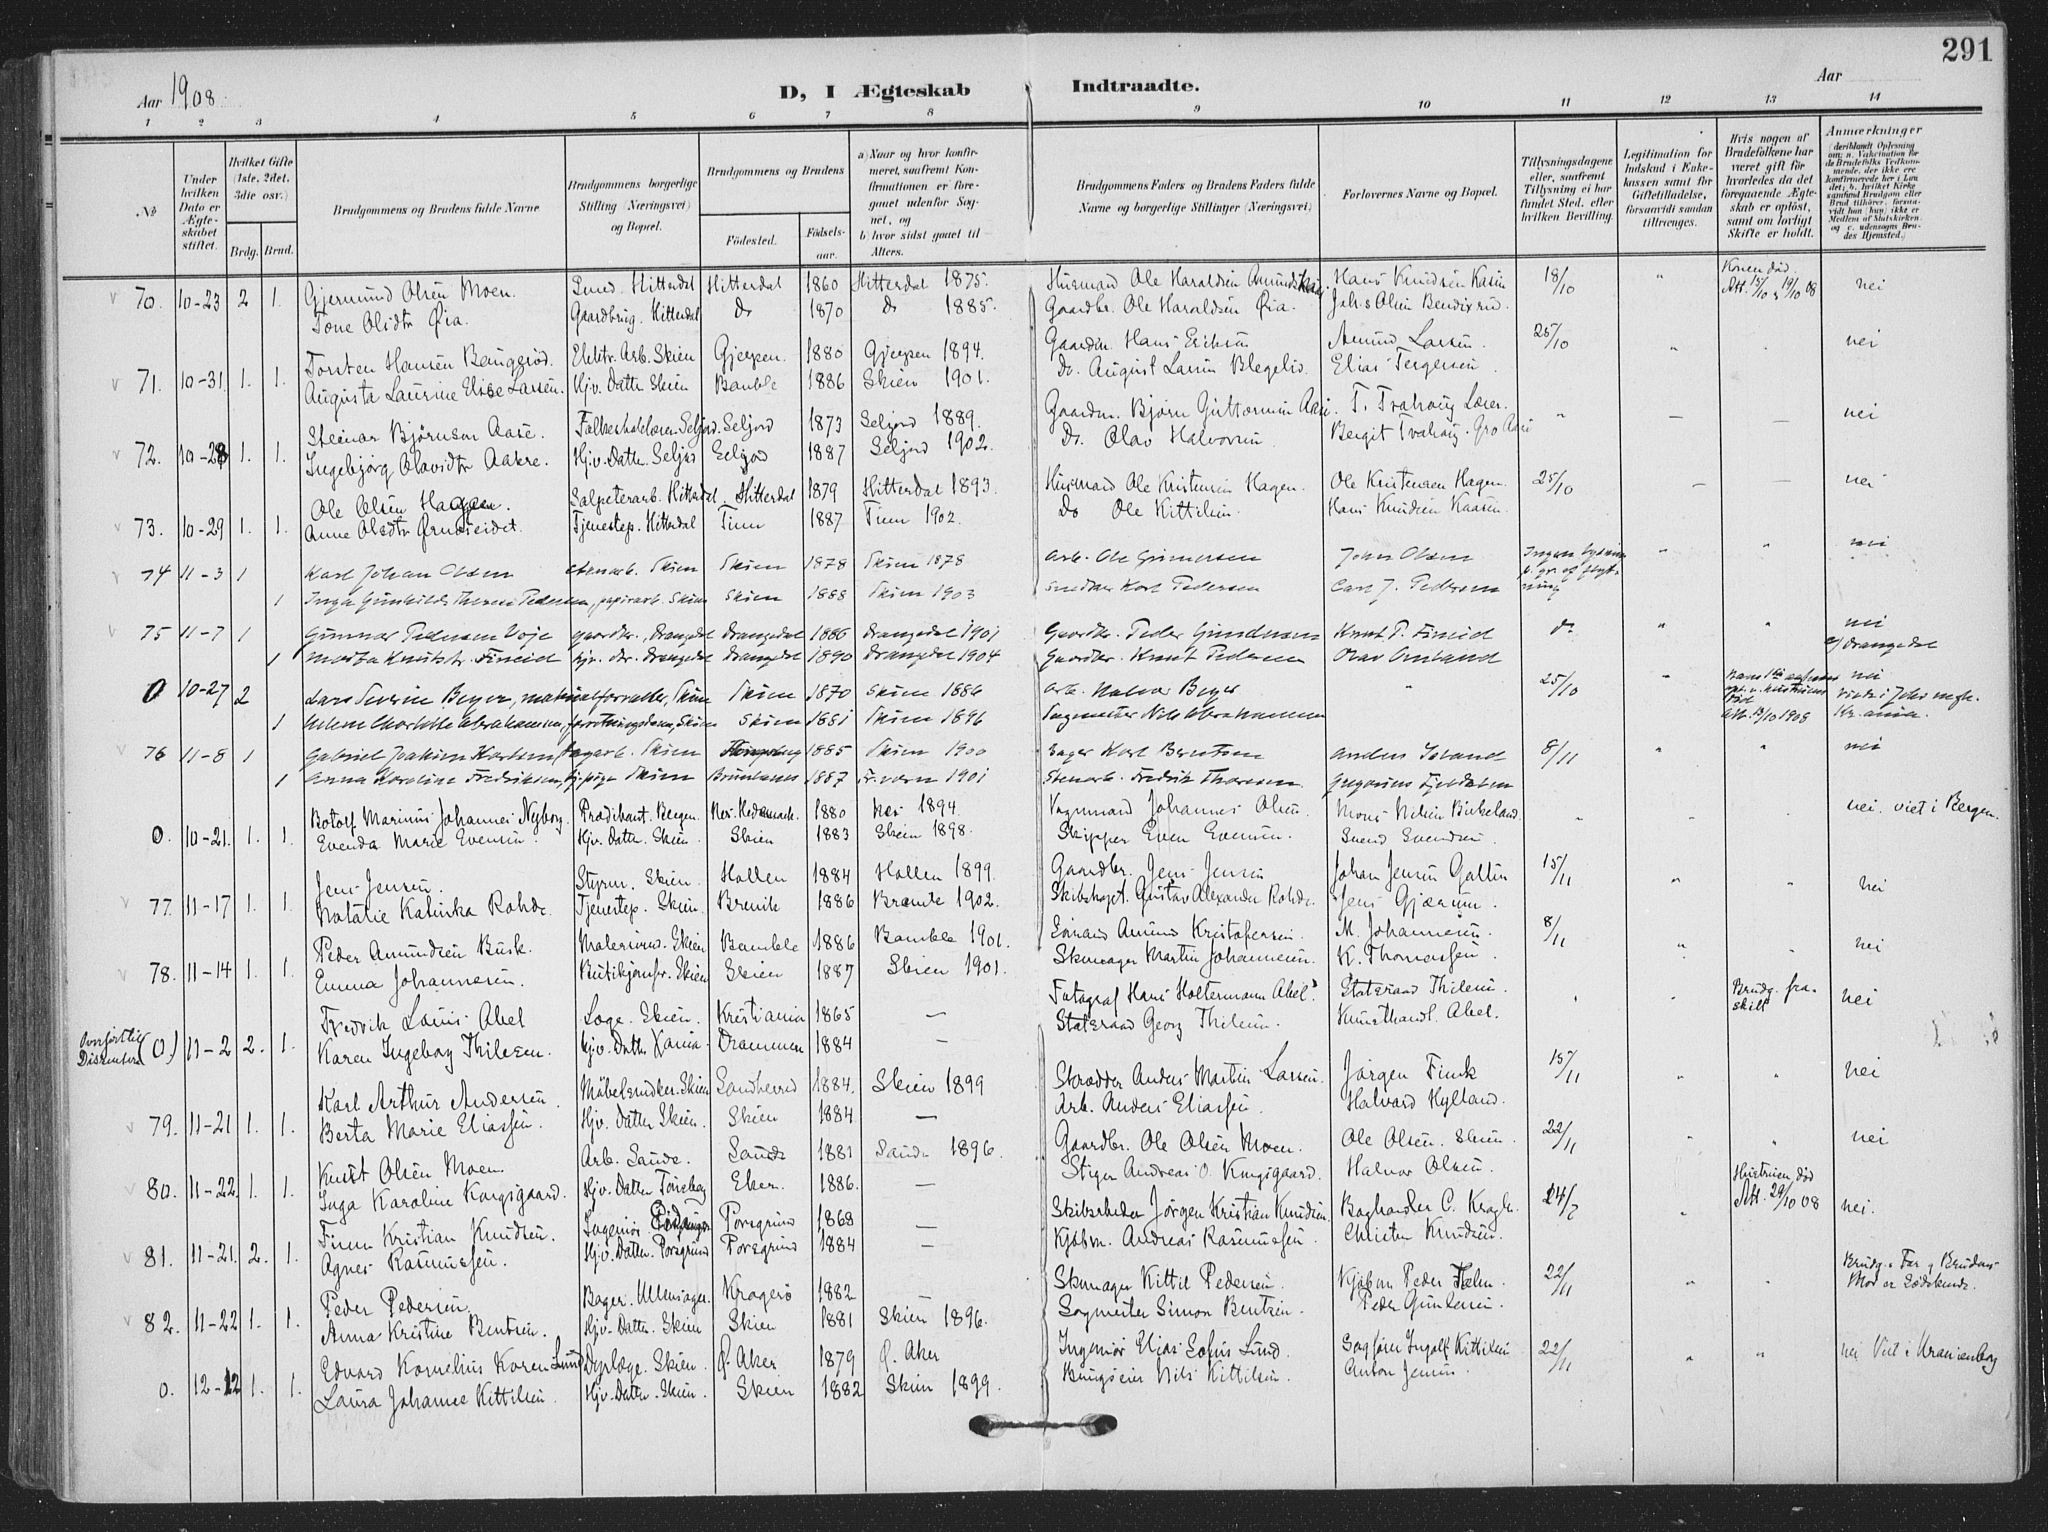 291
Aar 1908
D, I Ægteskab Indtraadte.
Aar
1 2 3 4 5 6 7 8 9 10 11 12 13 14
No
Under hvilken Dato er Ægteskabet stiftet.
Hvilket Gifte (1ste, 2det, 3die osv.)
Brdg. Brud.
Brudgommens og Brudens fulde Navne
Brudgommens borgerlige Stilling (Næringsvei) og Bopæl.
Brudgommens og Brudens
Fødested. Fødselsaar.
a) Naar og hvor konfirmeret, saafremt Konfirmationen er foregaaet udenfor Sognet, og
b) hvor sidst gaaet til Alters.
Brudgommens Faders og Brudens Faders fulde Navne og borgerlige Stillinger (Næringsvei)
Forlovernes Navne og Bopæl.
Tillysningsdagene eller, saafremt Tillysning ei har fundet Sted, efter hvilken Bevilling.
Legitimation for Indskud i Enkekassen samt for Giftetilladelse, forsaavidt saadan tiltrænges.
Hvis nogen af Brudefolkene har været gift før hvorledes da det foregaaende Ægteskab er opløst, samt om lovligt Skifte er holdt.
Anmærkninger
70. 10-23 2 1. Gjermund Olsen Moen. Smed. Hitterdal Hitterdal 1860 Hitterdal 1875. Husmand Ole Haraldsen Hans Knudsen Kasin 18/10 " Konen død Att. 15/10 19/10 08 nei
Tone Olsdtr Øia. Gaardbrug. Hitterdal Do 1870 Do 1885. Gaardbr. Ole Haraldsen Øia. Johs Olsen Bendixrud.
71. 10-31. 1. 1. Torsten Hansen Elektr. Arb. Skien Gjerpen. 1880 Gjerpen 1894. Gaardm. Hans Eriksen Amund Larsen. 25/10 " nei
Augusta Laurine Elise Larsen. Hjv. Datter Skien Bamble 1886 Skien 1901. Do. August Larsen Elias Tergersen
72. 10-28 1. 1. Steinar Bjørnsen Aase. Seljord. Seljord 1873 Seljord 1889. Gaardm. Bjørn Guttormsen Aase. T. Trahaug Lærer. " — — nei
Ingebjørg Olavsdtr Aakre. Hjv. Datter. Seljord Seljord 1887 Seljord 1902. Do. Olav Halvorsen Bergit Trahaug. Gro Aase
73. 10-29 1. 1. Ole Olsen Hagen. Salpeterarb. Hitterdal. Hitterdal 1879 Hitterdal 1893. Husmand Ole Kristensen Hagen. Ole Kristensen Hagen. 25/10 — — nei
Anne Olsdtr Ørnæseidet. Tjenestep. Hitterdal Tinn 1887 Tinn 1902. Do Ole Kittilsen. Hans Knudsen Kaasen.
74 11-3 1 Karl Johan Olsen Skien Skien 1878 Skien 1878 Arb. Ole Gunnersen John Olsen Ingen lysning p. gr. af flytning " " nei
1 Inga Gunhilda Therese Pedersen, papirarb. Skien Skien 1888 Skien 1903 Snedker Karl Pedersen Carl J. Pedersen
75 11-7 1 Gunnar Pedersen Voje gaardbr., Drangedal Drangedal 1886 Drangedal 1901 Gaardbr. Peder Gundersen Knut P. Fineid do " " nei
1 Marta Knutsdtr. Fineid hjv. dtr. Drangedal Drangedal 1890 Drangedal 1904 Gaardbr. Knut Pedersen Olav Omland c/ Drangedal
0 10-27 2 Lars Severin Beyer, materialforvalter, Skien Skien 1870 Skien 1886 Arb. Halvor Beyer " 25/10 " nei
1 Helene Charlotte Abrahamsen, Skien Skien 1881 Skien 1896 Nils Abrahamsen Att. 19/10 1908 viede i Johs mgh. Kr.ania.
76 11-8 1 Gabriel Joakim Karlsen, Skien 1885 Skien 1900 Bager Karl Berntsen Anders Island 8/11 " " nei
1 Anna Karoline Fredriksen, Skien Brunlanes 1887 1901 Stenarb. Fredrik Thoresen Gregorius Fjeldalen
0. 10-21. 1. 1. Botolf Marinus Johannes Nyborg. Prædikant. Bergen. Nes. Hedemark. 1880 Nes 1894 Johannes Olsen. Mons Nilsen Birkeland. " " " nei. viet i Bergen.
Evenda Marie Evensen. Hjv. Datter. Skien. Skien 1883 Skien 1898. Skipper Even Evensen. Svend Svendsen.
77. 11-17 1. 1. Jens Jensen. Styrm. Skien. Hollen 1884 Hollen 1899. Gaardbr. Jens Jensen Johan Jensen 15/11 " " nei
Natalie Katinka Rohde. Tjenestep. Skien. Brevik 1886 1902. Skibskapt. Gustav Alexander Rohde. Jens Gjærum.
78. 11-14 1. 1. Peder Amundsen Busk. Skien Bamble 1886 Bamble 1901. Sømand Amund Kristofersen. M. Johannesen. 8/11 " " nei
Emma Johannesen. Butikjomfr. Skien Skien 1887 Skien 1901. Skomager Martin Johannesen. K. Thomassen.
(0.) 11-2 2. 1. Fredrik Louis Abel Læge. Skien. Kristiania 1865 — Fotograf Hans Holtermann Abel. Statsraad Thilesen. " " Brudg. fraskilt nei
Karen Ingeborg Thilesen. Hjv. Datter Xania. Drammen 1884 — Statsraad Georg Thilesen. Kunsthandl. Abel.
79. 11-21 1. 1. Karl Arthur Andersen Møbelsnedker. Skien Sandherred 1884. Skien 1899 Skrædder Anders Martin Larsen. Jørgen Fink 15/11 " " nei
Berta Marie Eliassen. Hjv. Datter Skien. Skien 1884 — Arb. Anders Eliassen. Halvard Kylland.
80. 11-22. 1. 1. Knut Olsen Moen. Arb. Saude. Saude 1881 Saude 1896. Gaardbr. Ole Olsen Moen. Ole Olsen. Skien. 22/11 " " nei
Inga Karoline Kongsgaard. Hjv. Datter Tønsberg Eker. 1886. — Stiger Andreas O. Kongsgaard. Halvor Olsen.
81. 11-21. 2. 1. Finn Kristian Knudsen. Ingeniør Porsgrund 1868 — Skibsreder Jørgen Kristian Knudsen. Boghandler C. 24/7 " Hustruen død Att. 29/10 08 nei.
Agnes Rasmussen. Hjv. Datter. Porsgrund Porsgrund 1884 — Kjøbm. Andreas Rasmussen. Christen Knudsen.
82. 11-22 1. 1. Peder Pedersen. Bager. Ullensager. Kragerø 1882 — Skomager Kittil Pedersen. Kjøbm Peder 22/11 " " Brudg. Far og Brudens Mor er Sødskende.
Anna Kristine Bentsen. Hjv. Datter. Skien Skien 1881 Skien 1896. Sagmester Simon Bentsen. Peder Gundersen.
0. 12-12 1. 1. Edvard Kornelius Koren Lund Dyrlæge. Skien. Ø. Aker 1879 Ø. Aker Ingeniør Elias Sofus Lund. Sagfører Ingolf Kittilsen 22/11 " " nei Viet i Uranienborg
Laura Johanne Kittilsen. Hjv. Datter. Skien. Skien 1882 Skien 1899. Nils Kittilsen. Anton Jensen.